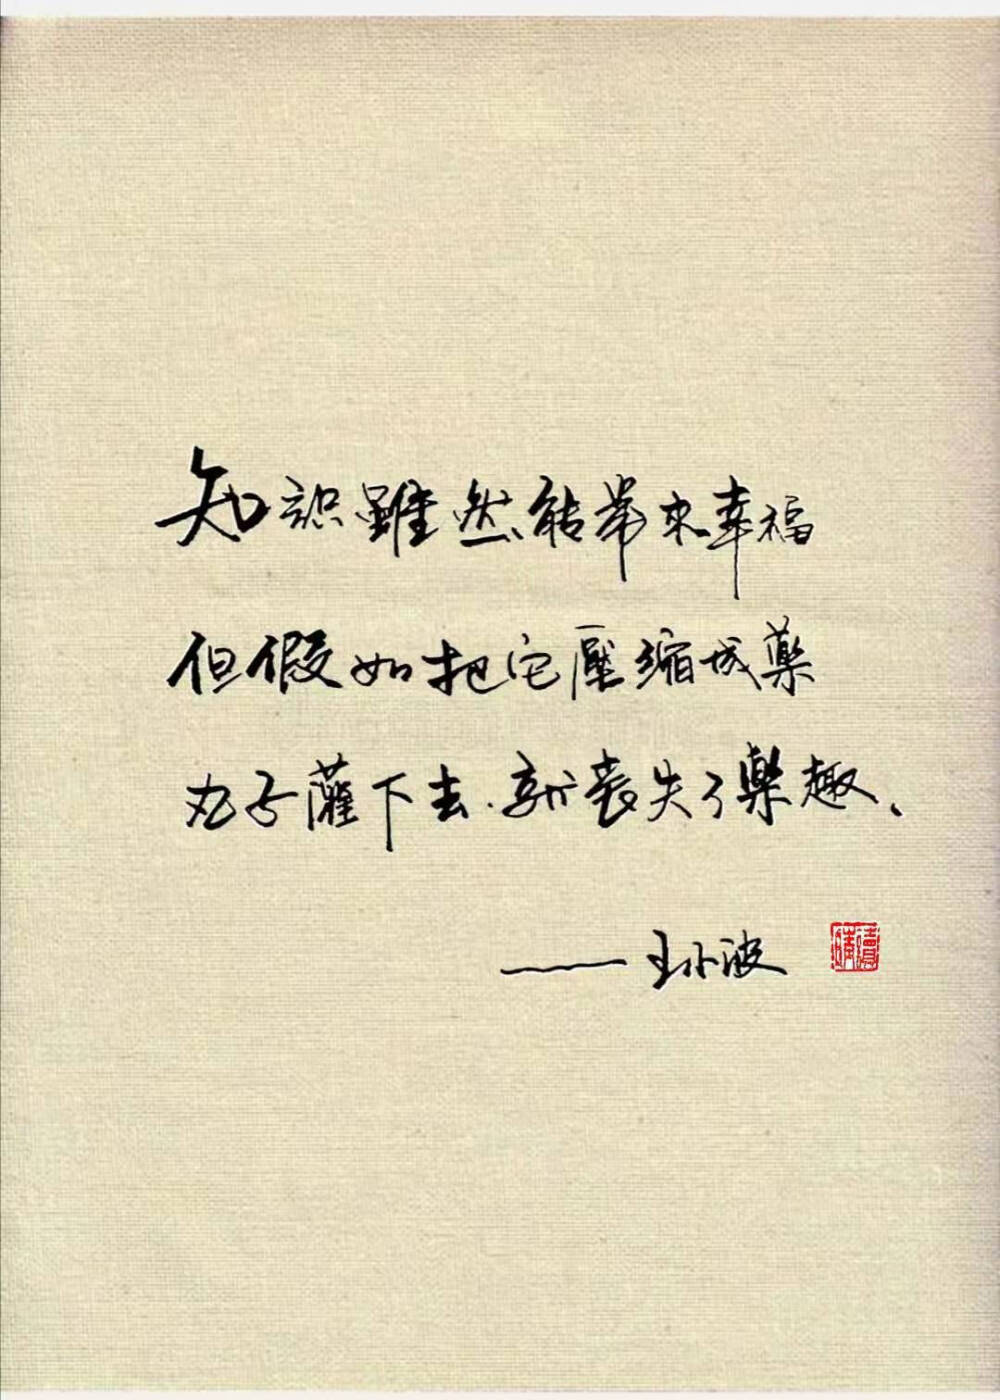 知识雖然能帶来幸福
但假如把它壓缩成藥
丸子灌下去.就丧失了樂趣、
——王小波